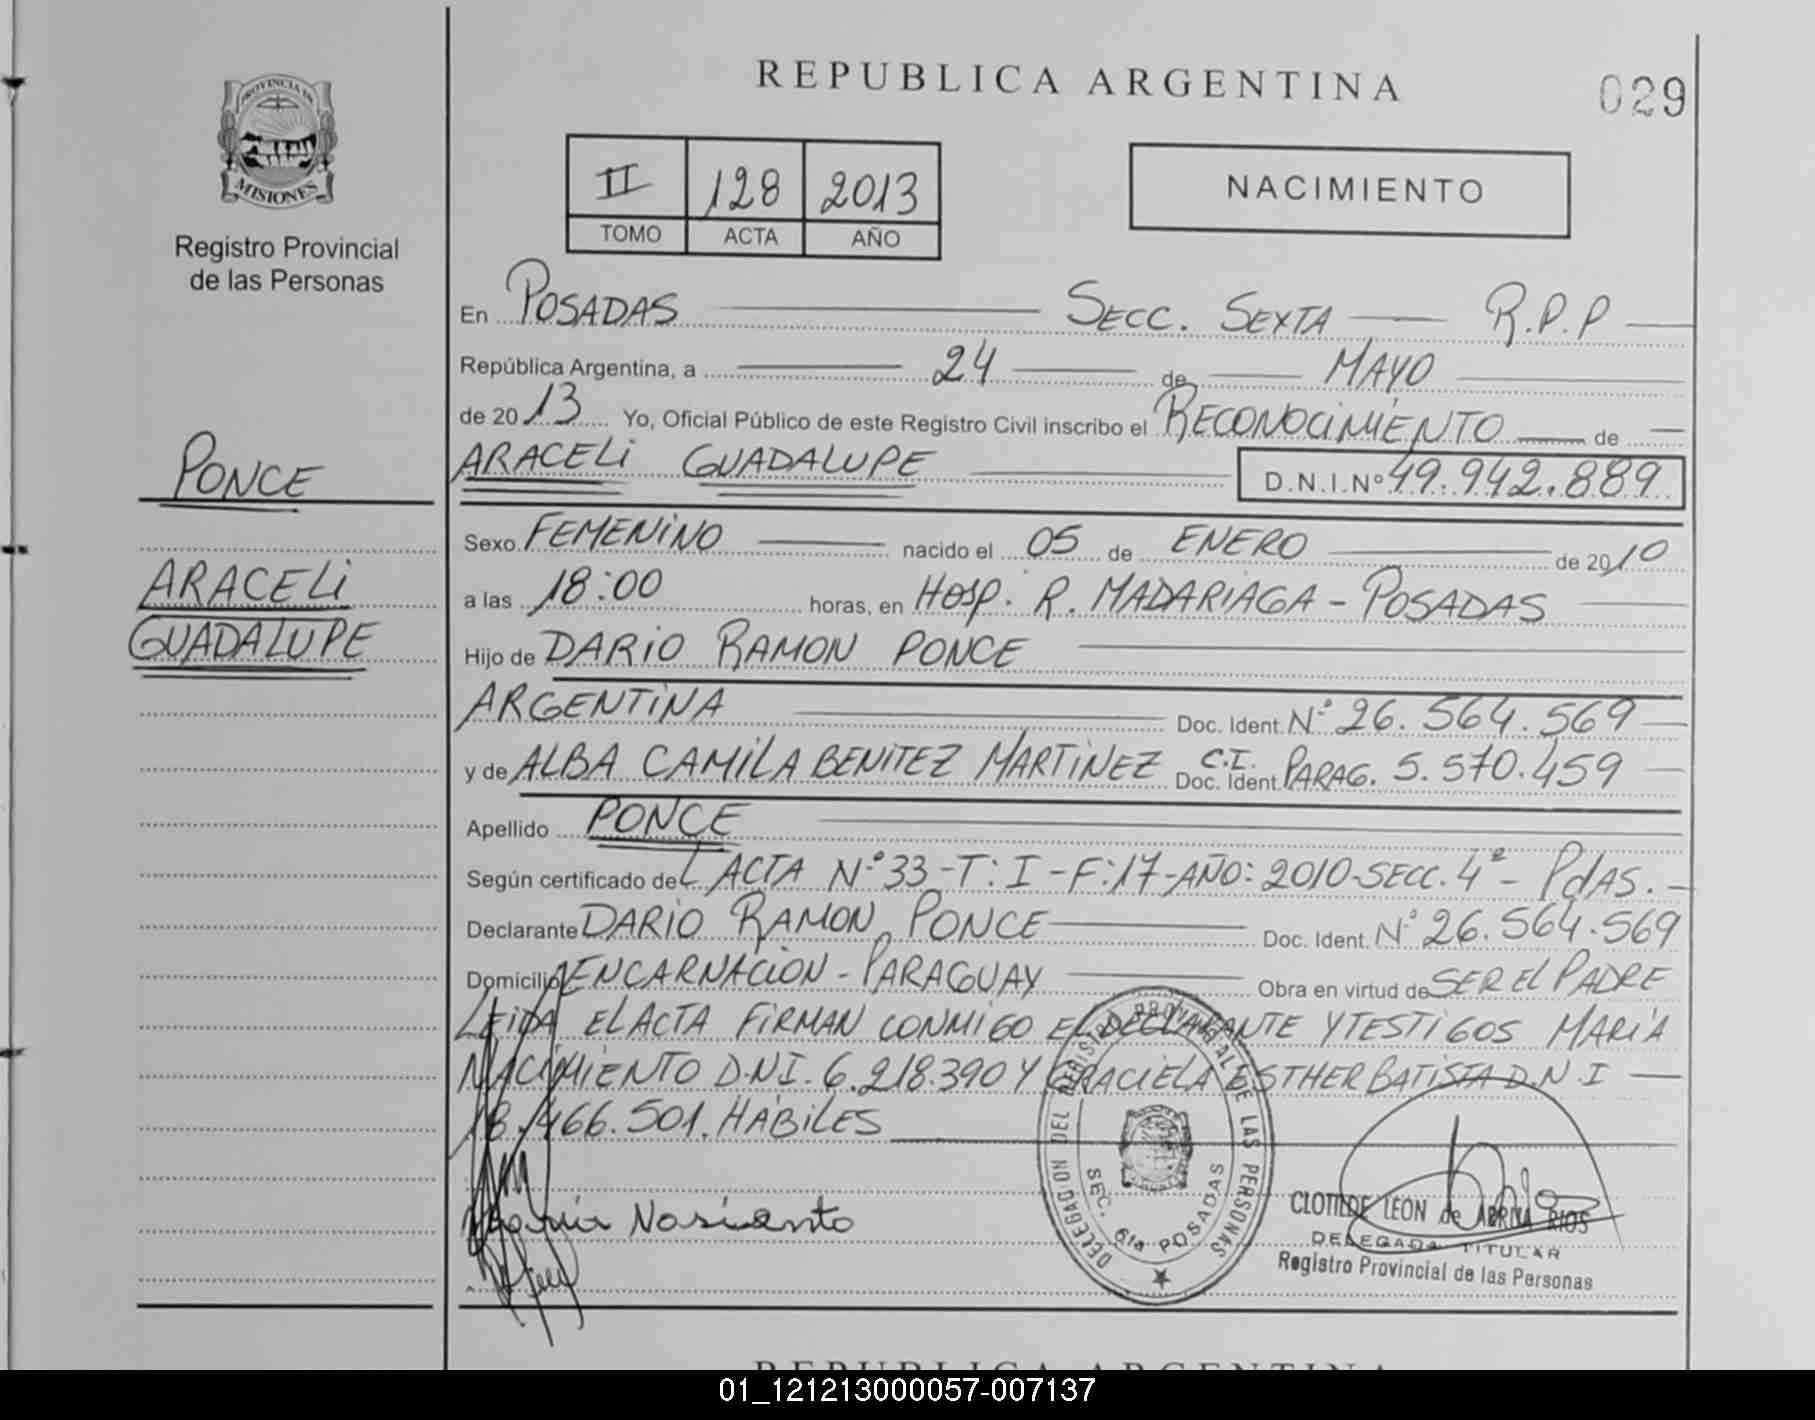 REPUBLICA ARGENTINA
029
PROVINCIA DE
MISIONES
Registro Provincial
de las Personas
II 128 2013
TOMO ACTA AÑO
NACIMIENTO
En POSADAS SECC. SEXTA R.P.P
República Argentina, a 24 de MAYO
de 2013 Yo, Oficial Público de este Registro Civil inscribo el RECONOCIMIENTO de
ARACELI GUADALUPE D.N.I.Nº 49.942.889
PONCE
ARACELI
GUADALUPE
Sexo FEMENINO nacido el 05 de ENERO de 2010
a las 18:00 horas, en HOSP. R. MADARIAGA - POSADAS
Hijo de DARIO RAMON PONCE
ARGENTINA Doc. Ident. Nº 26.564.569
y de ALBA CAMILA BENITEZ MARTINEZ C.I. Doc. Ident. PARAG. 5.570.459
Apellido PONCE
Según certificado deL ACTA Nº 33-T: I-F:17-AÑO: 2010-SECC. 4ª- PdAS.-
Declarante DARIO RAMON PONCE Doc. Ident. Nº 26.564.569
Domicilio ENCARNACION - PARAGUAY Obra en virtud de SER El PADRE
LEIDA El ACTA FIRMAN CONMIGO EL DECLARANTE Y TESTIGOS MARIA
NACIMIENTO D.N.I. 6.218.390 Y GRACIELA ESTHER BATISTA D.N.I
18.466.501. HABILES
Maria Nasianto
DELEGACION DEL REGISTRO PROVINCIAL DE LAS PERSONAS
SEC. 6ta POSADAS
CLOTILDE LEON de RIOS
DELEGADA TITULAR
Registro Provincial de las Personas
REPUBLICA ARGENTINA
01_121213000057-007137